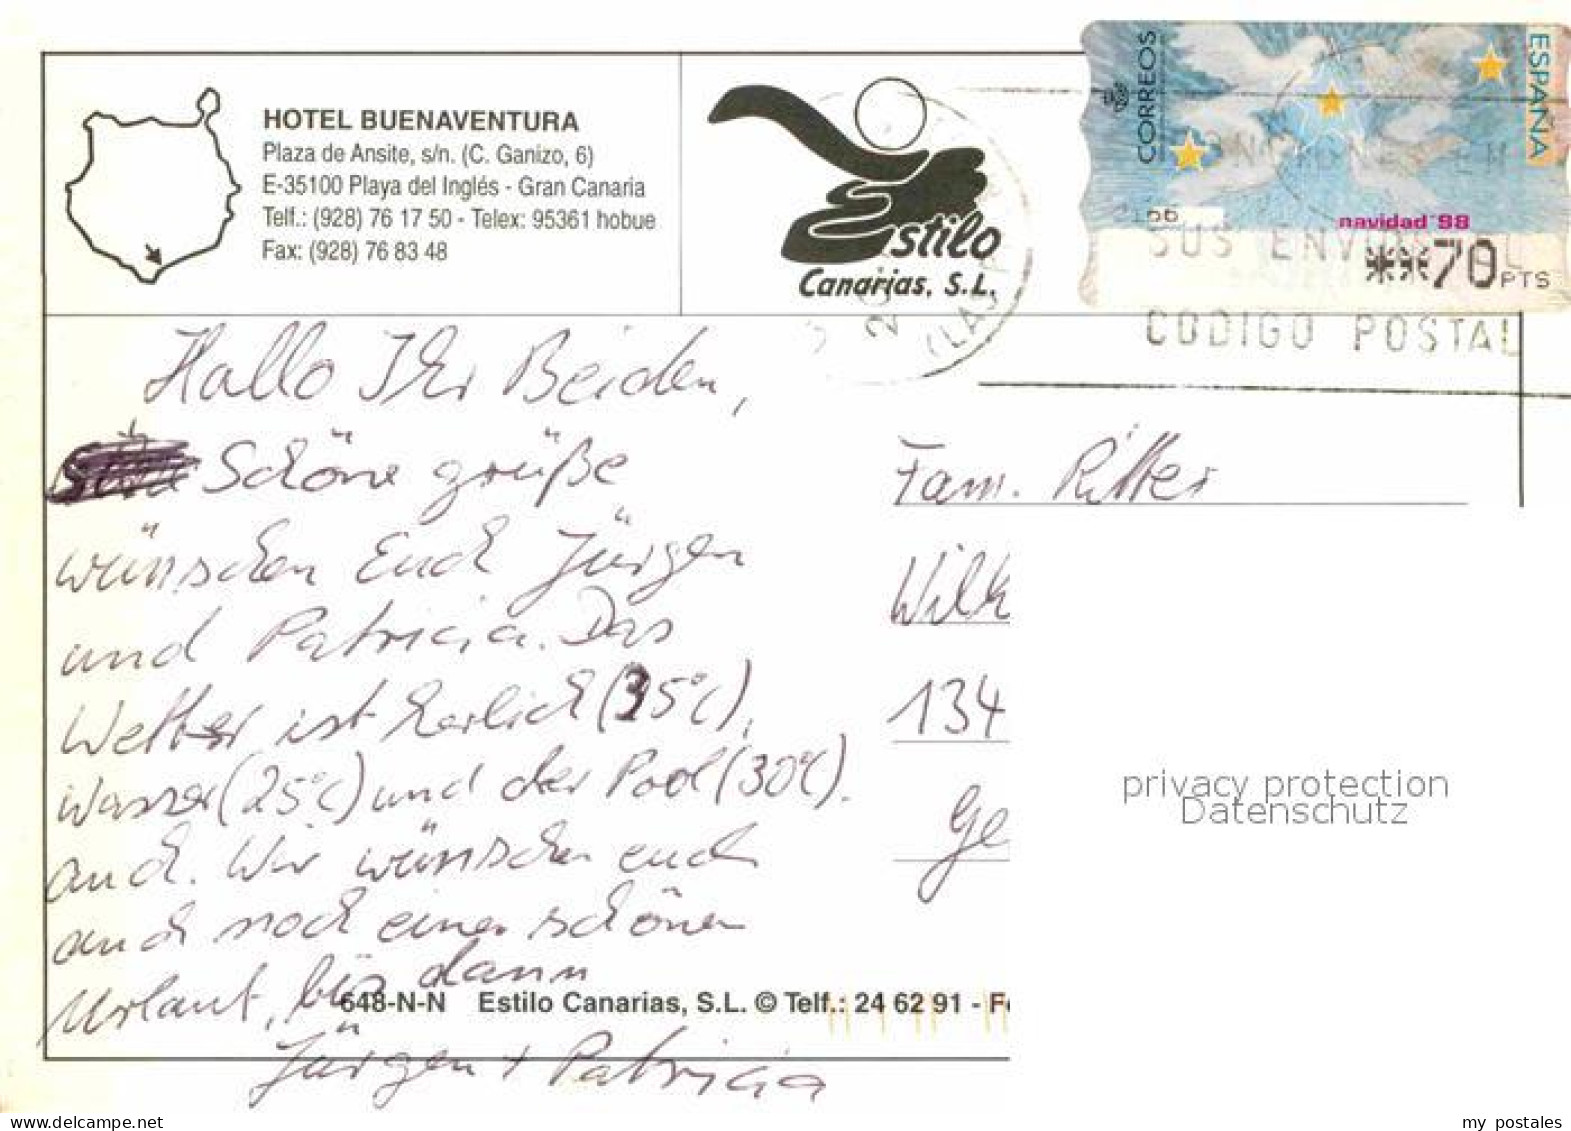 HOTEL BUENAVENTURA
Plaza de Ansite, s/n. (C. Ganizo, 6)
E-35100 Playa del Inglés - Gran Canaria
Telf.: (928) 76 17 50 - Telex: 95361 hobue
Fax: (928) 76 83 48
Estilo
Canarias, S.L.
CORREOS
ESPAÑA
navidad'98
**70 PTS
SUS ENVIOS EL
CODIGO POSTAL
Hallo Ihr Beiden,
Schöne grüße
wünschen Euch Jürgen
und Patricia. Das
Wetter ist herlich (35°C),
Wasser (25°C) und der Pool (30°C).
auch. Wir wünschen euch
auch noch einen schönen
Urlaut, bis dann
Jürgen + Patricia
Fam. Ritter
Wilh
134
Ge
privacy protection
Datenschutz
648-N-N Estilo Canarias, S.L. © Telf.: 24 62 91 - F
www.delcampe.net
my_postales